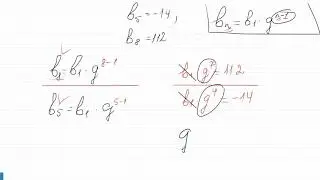 b₅ = -14,
b₈ = 112
bₙ = b₁ · g^(n-1)
b₈ = b₁ · g^(8-1)
b₅ = b₁ · g^(5-1)
b₁ g⁷ = 112
b₁ g⁴ = -14
g